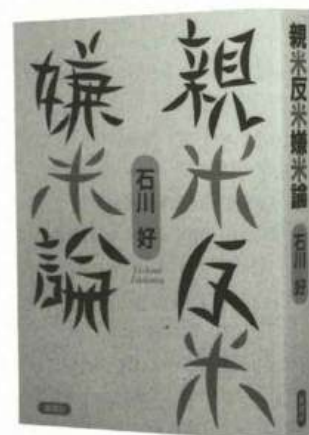 親米反米
嫌米論
石川 好
Yoshimi Ishikawa
親米反米嫌米論
石川 好